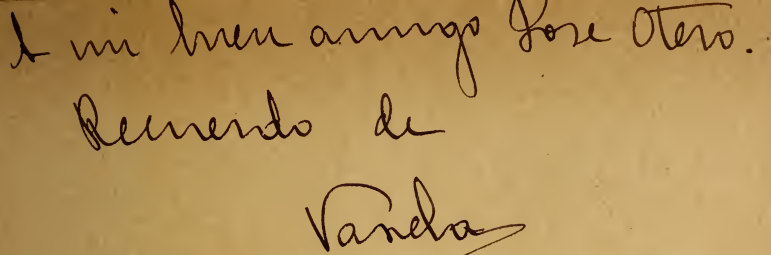 A mi buen amigo Jose Otero.
Recuerdo de